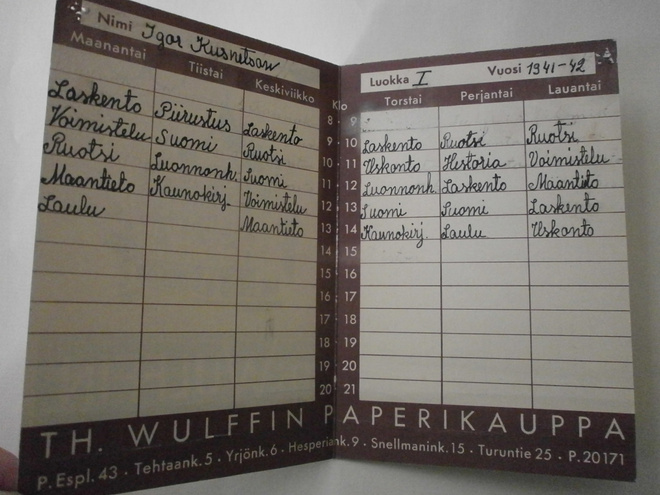 Nimi Igor Kusnetsow
Maanantai Tiistai Keskiviikko Klo
8
Laskento Piirustus Laskento 9
Voimistelu Suomi Ruotsi 10
Ruotsi Luonnonh. Suomi 11
Maantieto Kaunokirj. Voimistelu 12
Laulu Maantieto 13
14
15
16
17
18
19
20
Luokka I Vuosi 1941-42
Torstai Perjantai Lauantai
9
10 Laskento Ruotsi Ruotsi
11 Uskonto Historia Voimistelu
12 Luonnonh. Laskento Maantieto
13 Suomi Suomi Laskento
14 Kaunokirj. Laulu Uskonto
15
16
17
18
19
20
21
TH. WULFFIN PAPERIKAUPPA
P. Espl. 43 · Tehtaank. 5 · Yrjönk. 6 · Hesperiank. 9 · Snellmanink. 15 · Turuntie 25 · P. 20171